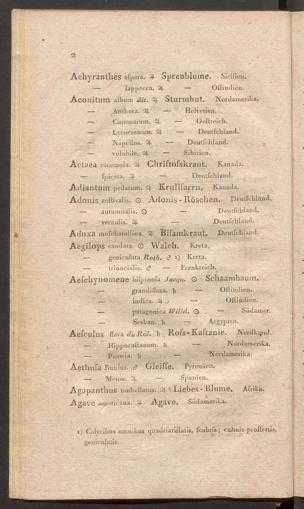 2
Achyranthes aspera. ♃ Spreublume. Sicilien.
— lappacea. ♃ — Ostindien.
Aconitum album Ait. ♃ Sturmhut. Nordamerika.
— Anthora. ♃ — Helvetien.
— Cammarum. ♃ — Oestreich.
— Lycoctonum. ♃ — Deutschland.
— Napellus. ♃ — Deutschland.
— volubile. ♃ — Sibirien.
Actaea racemosa. ♃ Christofskraut. Kanada.
— spicata. ♃ — Deutschland.
Adiantum pedatum. ♃ Krullfarrn. Kanada.
Adonis aestivalis. ☉ Adonis-Röschen. Deutschland.
— autumnalis. ☉ — Deutschland.
— vernalis. ♃ — Deutschland.
Adoxa moschatellina. ♃ Bisamkraut. Deutschland.
Aegilops caudata. ☉ Walch. Kreta.
— geniculata Roth. ♂ 1) Kreta.
— triuncialis. ♂ — Frankreich.
Aeschynomene hispinosa Jacqu. ☉ Schaambaum.
— grandiflora. ♄ — Ostindien.
— indica. ♃ — Ostindien.
— patagonica Willd. ☉ — Südamer.
— Sesban. ♄ — Aegypten.
Aesculus flava du Roi. ♄ Ross-Kastanie. Nordkand.
— Hippocastanum. ♄ — Nordamerika.
— Pawia. ♄ — Nordamerika
Aethusa Bunius. ♂ Gleisse. Pyrenäen.
— Meum. ♃ Spanien.
Agapanthus umbellatus. ♃ Liebes-Blume. Afrika.
Agave americana. ♃ Agave. Südamerika.
1) Calycibus omnibus quadriaristatis, scabris; culmis prostratis,
geniculatis.